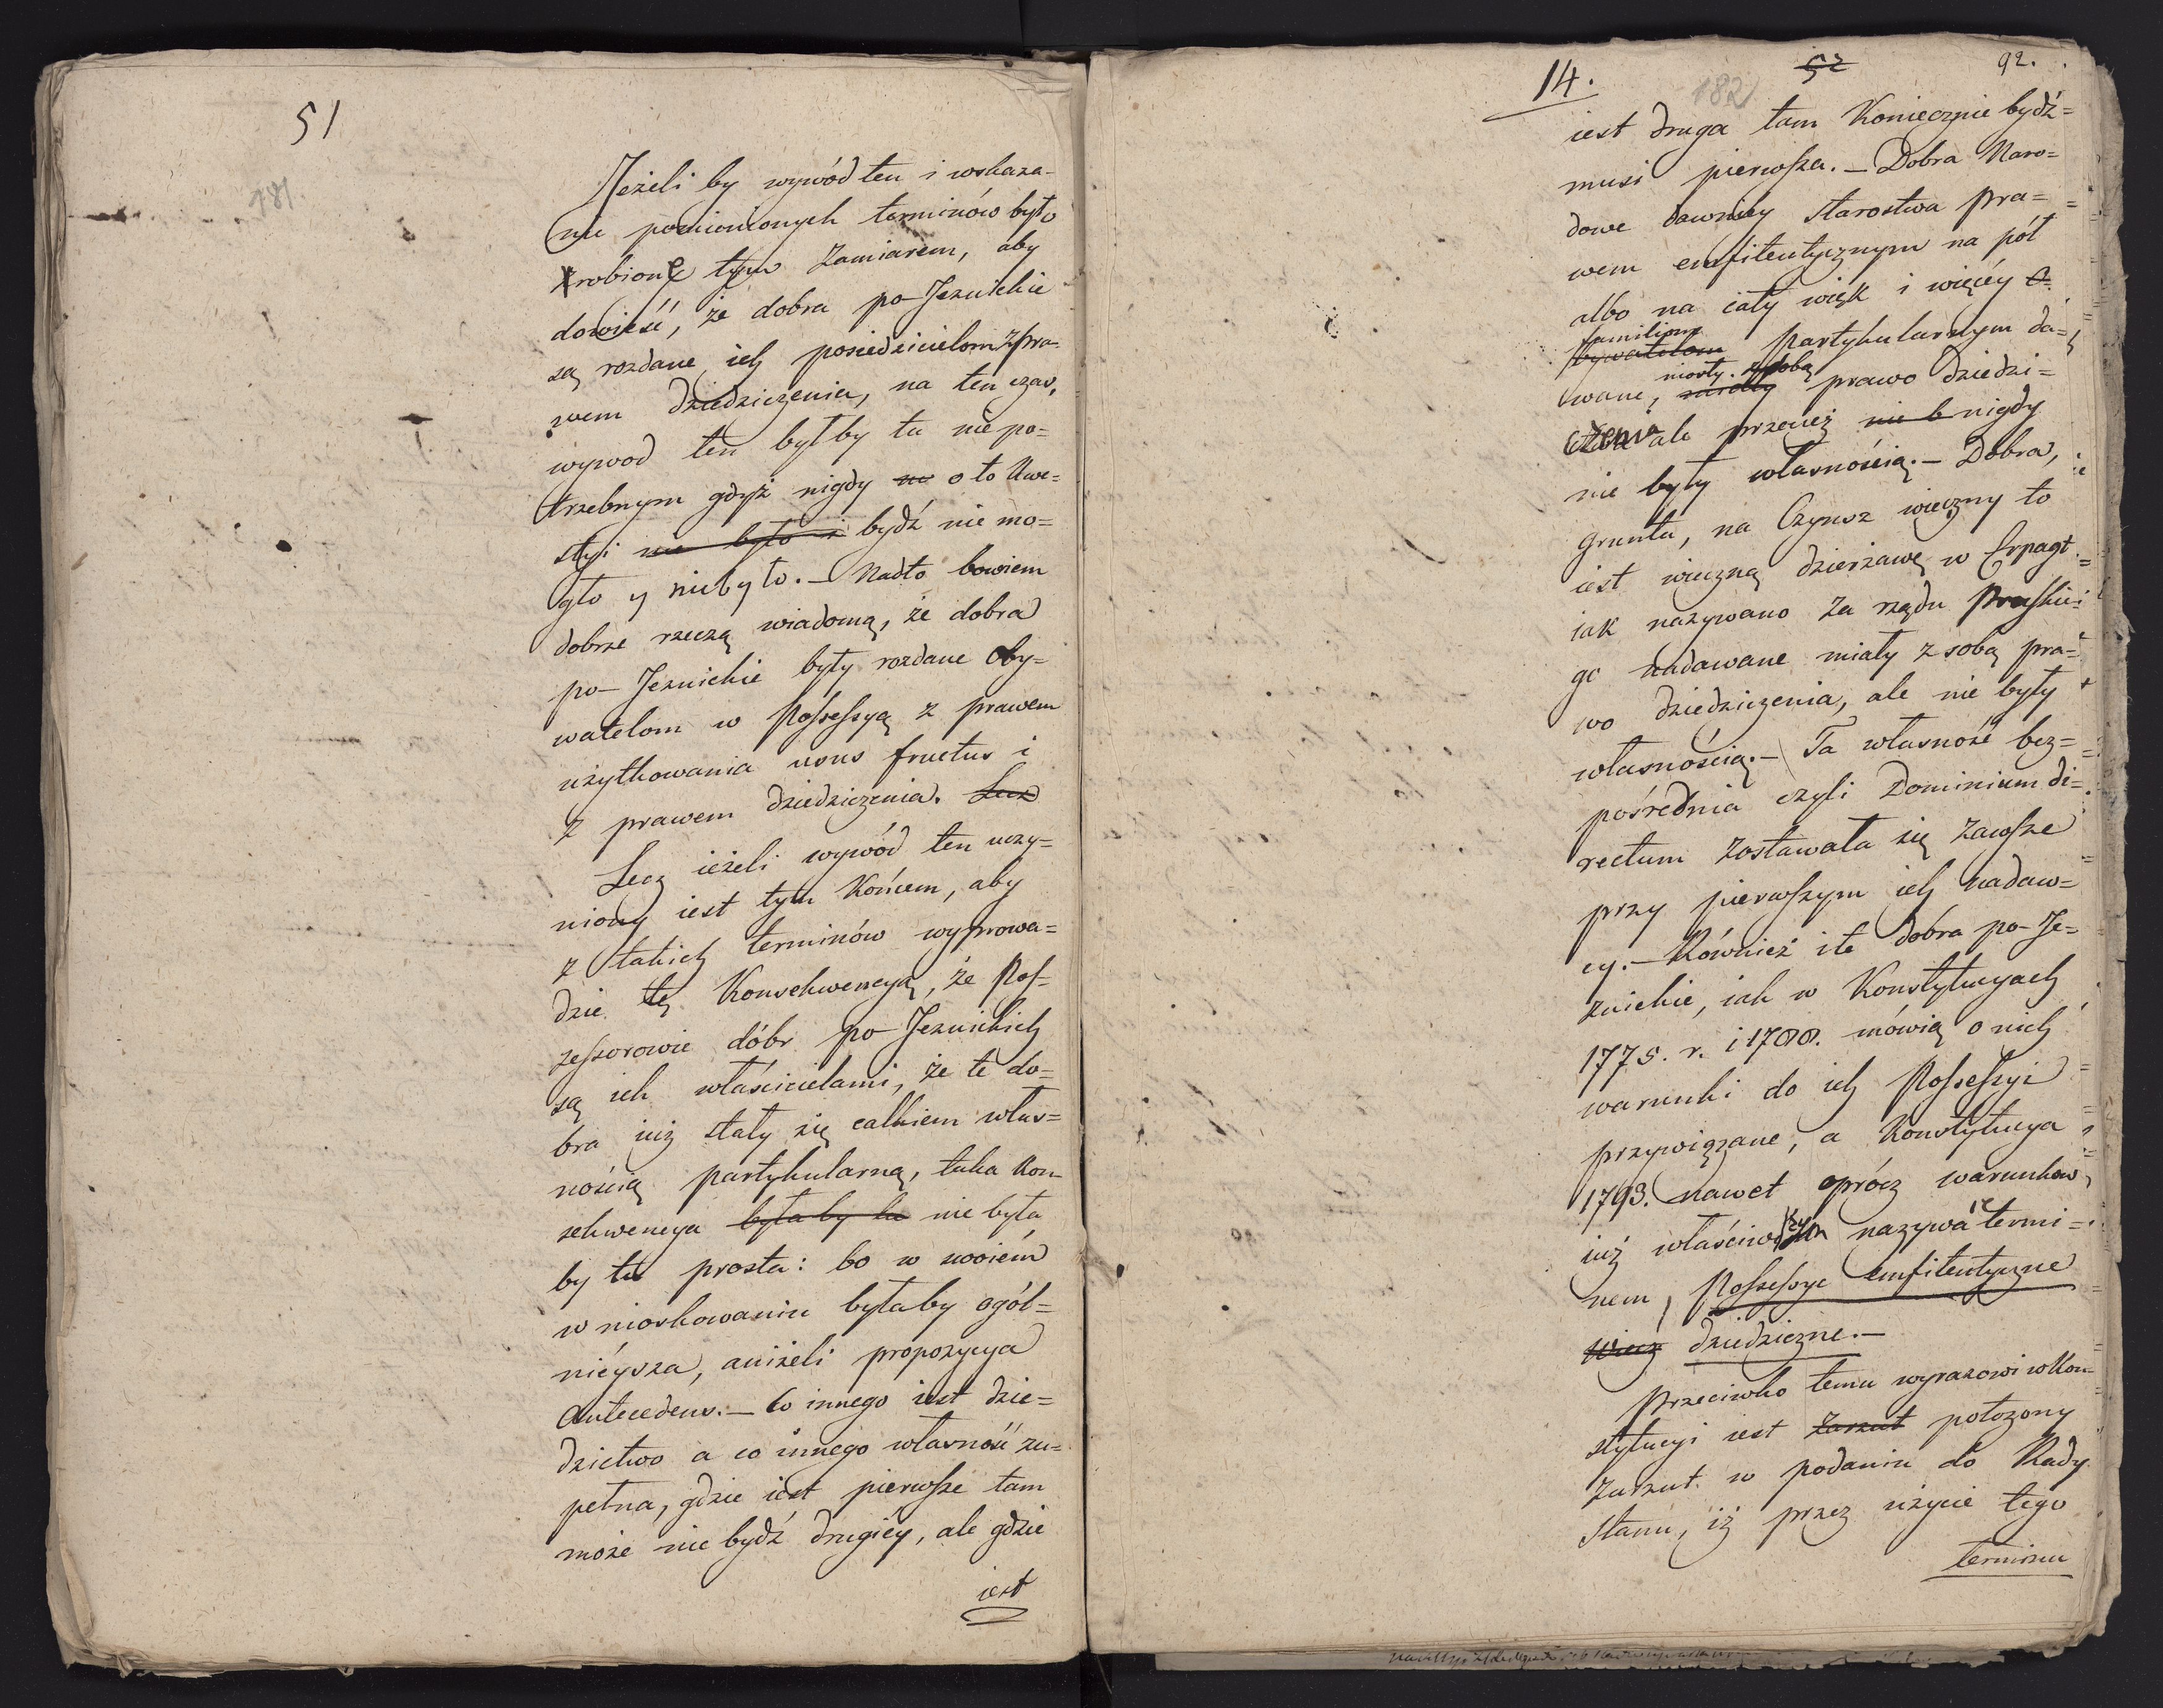 51
181
Jeżeli by wywód ten i wskaza-
nie pomienionych terminów było
zrobione tym zamiarem, aby
dowieść, że dobra po-Jezuickie
są rozdane ich posiedzicielom z pra-
wem dziedziczenia, na ten czas,
wywod ten byłby tu niepo=
trzebnym gdyż nigdy o to kwe=
styi nie było i bydź nie mo=
gło y nie było. — Nadto bowiem
dobrze rzeczą wiadomą, że dobra
po-Jezuickie były rozdane Oby=
watelom w Possessyą z prawem
użytkowania usus fructus i
z prawem dziedziczenia. Lecz
Lecz ieżeli wywód ten uczy=
niony iest tym końcem, aby
z takich terminów wyprowa=
dzić tę Konsekwencyą, że Pos-
sessorowie dóbr po-Jezuickich
są ich właścicielami, że te do=
bra iuż stały się całkiem włas=
nością partykularną, taka kon-
sekwencya była by ta nie była
by tu prosta: bo w swoiém
wnioskowaniu byłaby ogól=
nieysza, aniżeli propozycya
Antecedens. — Co innego iest dzie=
dzictwo a co innego własność zu=
pełna, gdzie iest pierwsze tam
może nie bydź drugiéy, ale gdzie
iest
14.
182
52
92.
iest druga tam koniecznie bydź=
musi pierwsza. — Dobra Naro=
dowe dawniey Starostwa pra=
wem emfiteutycznym na pół
albo na cały wiek i więcéy o
familiom
bywatelom partykularnym da=
miały z sobą
wane, miały prawo dziedzi=
czenia ale przecież nie b nigdy
nie były własnością. — Dobra,
grunta, na Czynsz wieczny to
iest wieczną dzierżawę w Erpagt
iak nazywano za rządu Pruskie=
go nadawane miały z sobą pra=
wo dziedziczenia, ale nie były
własnością. — Ta własność bez=
pośrednia czyli Dominium di=
rectum zostawała się zawsze
przy pierwszym ich nadaw=
cy. — Również i te dobra po-Je=
zuickie, iak w Konstytucyach
1775. r. i 1788. mówią o nich
warunki do ich Possessyi
przywiązane, a Konstytucya
1793. nawet oprócz warunkow
iuż właściwszym nazywa ie termi=
nem, Possessye emfiteutyczne
wiecz dziedziczne. —
Przeciwko temu wyrazowi w Kon-
stytucyi iest zarzut położony
zarzut w podaniu do Rady
Stanu, iż przez użycie tego
terminu